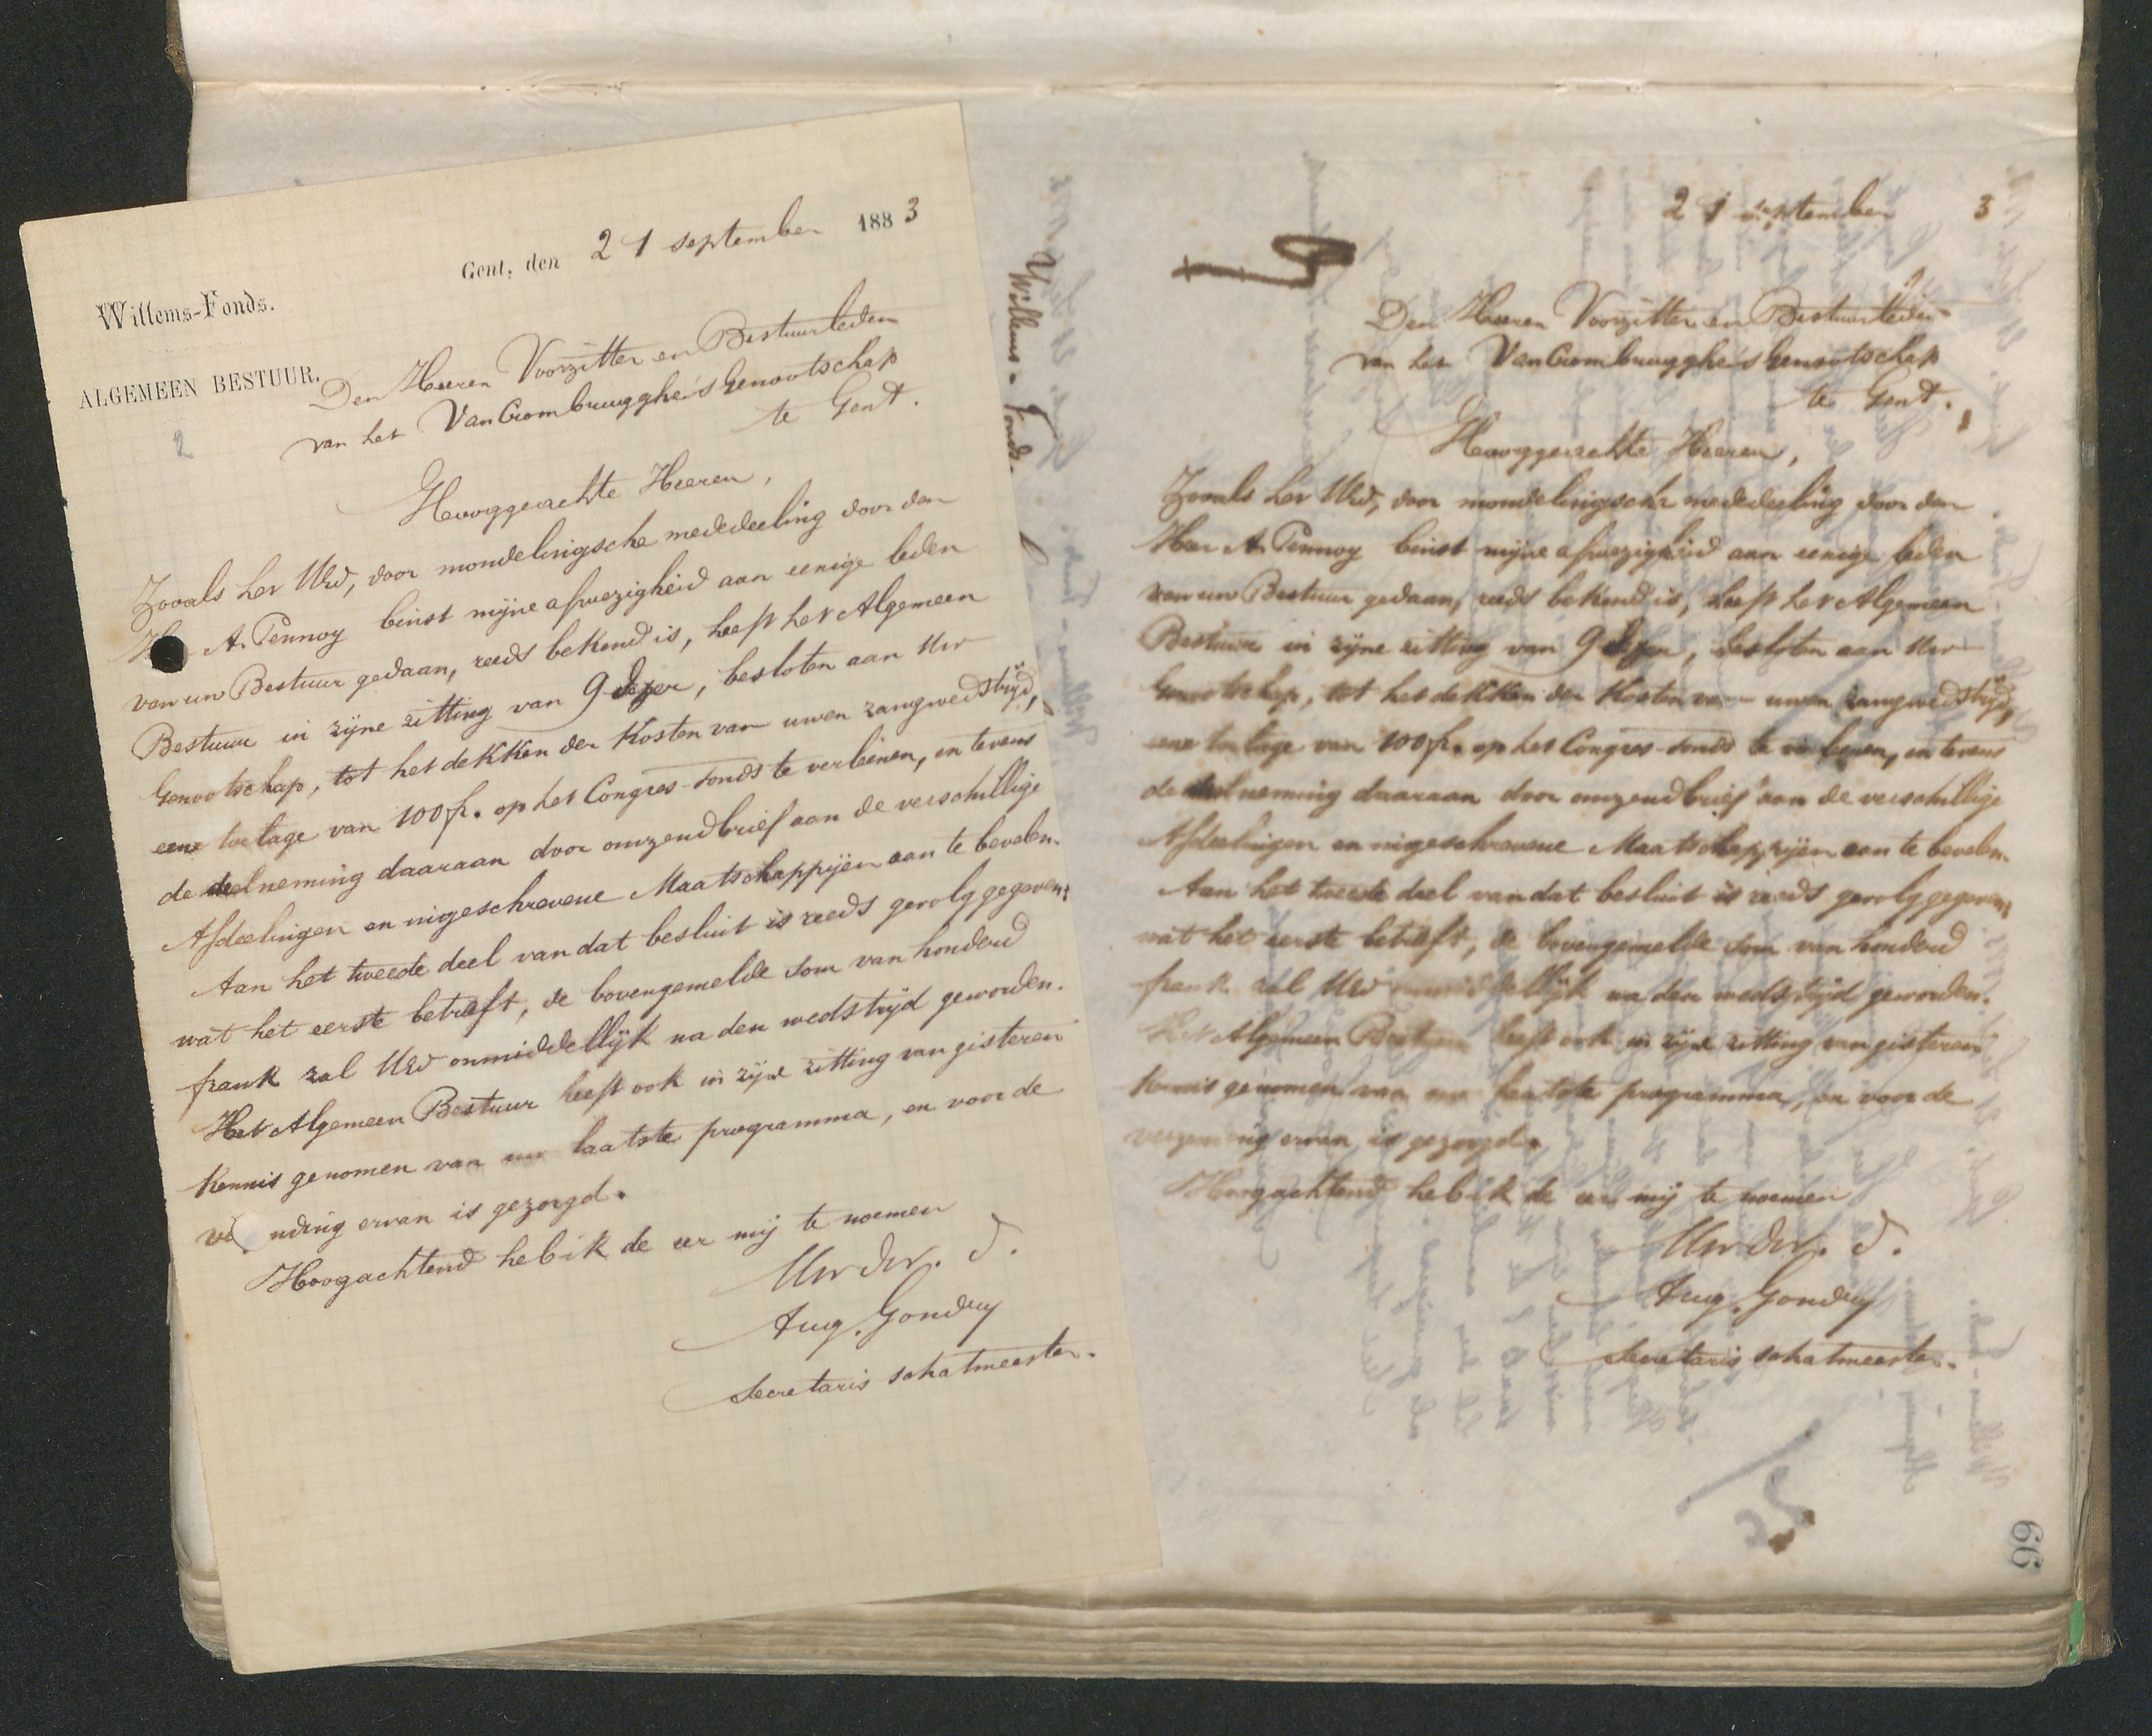 Gent, den 21 september 1883
Willems-Fonds.
ALGEMEEN BESTUUR.
2
Den Heeren Voorzitter en Bestuurleden
van het VanCrombrugghe's Genootschap
te Gent.
Hooggeachte Heeren,
Zooals het Ued, door mondelingsche mededeeling door den
A. Pennoy binst mijne afwezigheid aan eenige leden
van uw Bestuur gedaan, reeds bekend is, heeft het Algemeen
Bestuur in zijne zitting van 9 dezer, besloten aan Uw
Genootschap, tot het dekken der Kosten van uwen zangwedstrijd,
eene toelage van 100 fr. op het Congres-fonds te verleenen, en tevens
de deelneming daaraan door omzendbrief aan de verschillige
Afdeelingen en ingeschrevene Maatschappijen aan te bevelen.
Aan het tweede deel van dat besluit is reeds gevolg gegeven;
wat het eerste betreft, de bovengemelde som van honderd
frank zal Ued onmiddellijk na den wedstrijd geworden.
Het Algemeen Bestuur heeft ook in zijne zitting van gisteren
Kennis genomen van uw laatste programma, en voor de
ve nding ervan is gezorgd.
Hoogachtend heb ik de eer mij te noemen
Uw dw. d.
Aug. Gondry
Secretaris schatmeester.
Willems-Fonds.
21 september 3
Den Heeren Voorzitter en Bestuurleden
van het VanCrombrugghe's Genootschap
te Gent.
Hooggeachte Heeren,
Zooals het Ued, door mondelingsche mededeeling door den
Heer A. Pennoy binst mijne afwezigheid aan eenige leden
van uw Bestuur gedaan, reeds bekend is, heeft het Algemeen
Bestuur in zijne zitting van 9 dezer, besloten aan Uw
Genootschap, tot het dekken der Kosten van uwen zangwedstrijd,
eene toelage van 100 fr. op het Congres-fonds te verleenen, en tevens
de deelneming daaraan door omzendbrief aan de verschillige
Afdeelingen en ingeschrevene Maatschappijen aan te bevelen.
Aan het tweede deel van dat besluit is reeds gevolg gegeven;
wat het eerste betreft, de bovengemelde som van honderd
frank zal Ued onmiddellijk na den wedstrijd geworden.
Het Algemeen Bestuur heeft ook in zijne zitting van gisteren
Kennis genomen van uw laatste programma, en voor de
verzending ervan is gezorgd.
Hoogachtend heb ik de eer mij te noemen
Uw dw. d.
Aug. Gondry
Secretaris schatmeester.
66